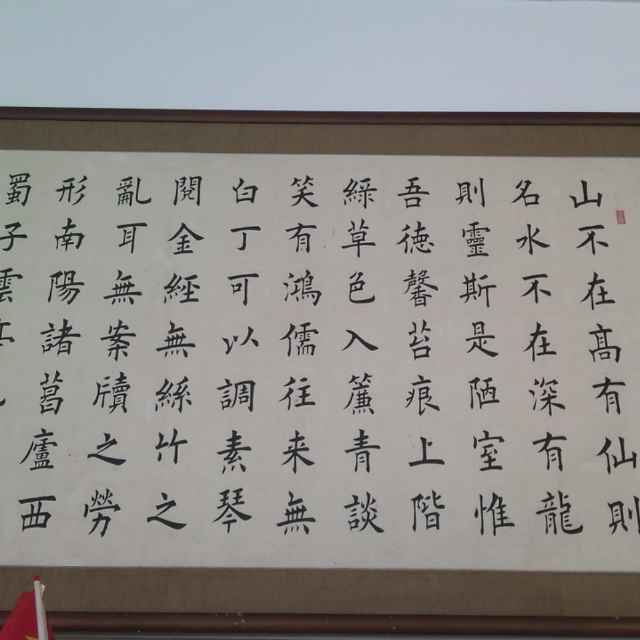 山不在髙有仙則
名水不在深有龍
則靈斯是陋室惟
吾徳馨苔痕上階
綠草色入簾青談
笑有鴻儒往来無
白丁可以調素琴
閱金經無絲竹之
亂耳無案牘之勞
形南陽諸葛廬西
蜀子雲亭